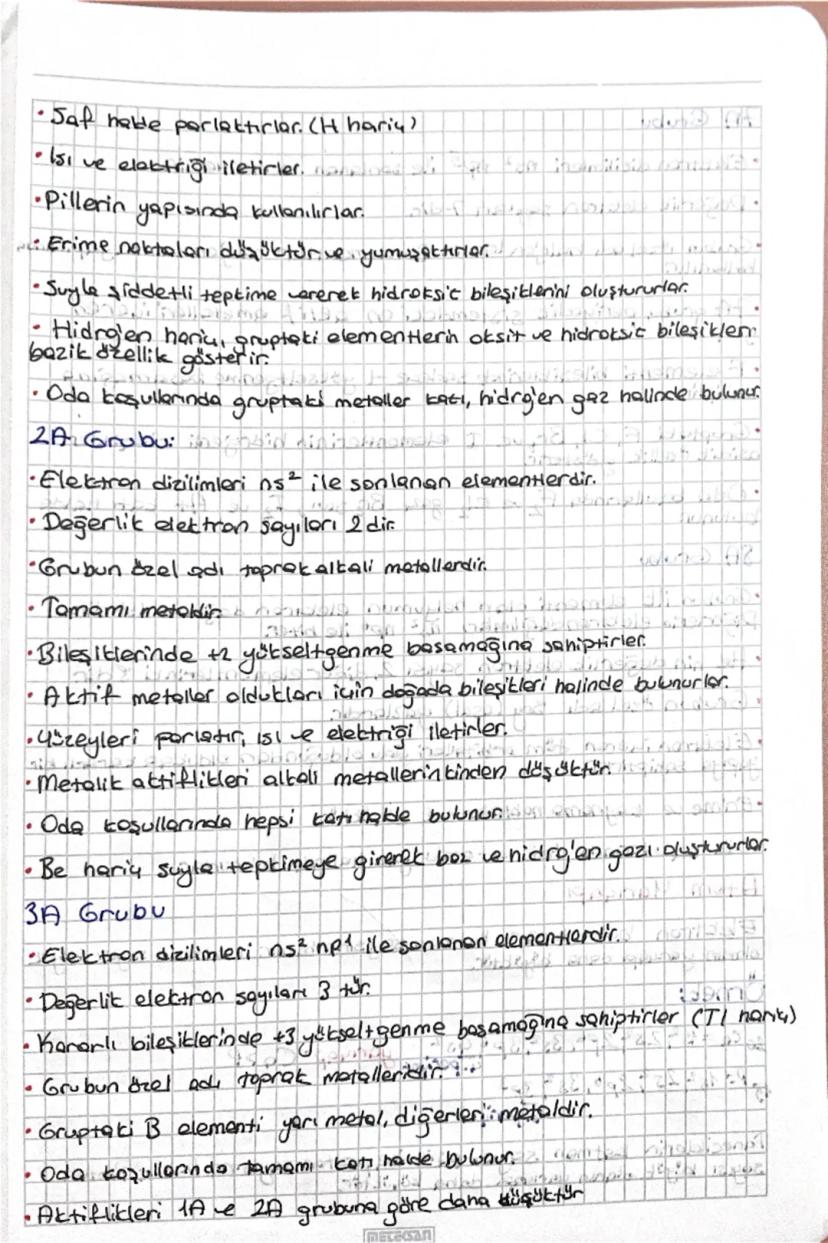 • Saf halde parlaktırlar. (H hariç)
• Isı ve elektriği iletirler.
• Pillerin yapısında kullanılırlar.
• Erime noktaları düşüktür ve yumuşaktırlar.
• Suyla şiddetli tepkime vererek hidroksit bileşiklerini oluştururlar.
• Hidrojen hariç, gruptaki elementlerin oksit ve hidroksit bileşikleri
bazik özellik gösterir.
• Oda koşullarında gruptaki metaller katı, hidrojen gaz halinde bulunur.
2A Grubu:
• Elektron dizilimleri ns² ile sonlanan elementlerdir.
• Değerlik elektron sayıları 2 dir.
• Grubun özel adı toprak alkali metallerdir.
• Tamamı metaldir.
• Bileşiklerinde +2 yükseltgenme basamağına sahiptirler.
• Aktif metaller oldukları için doğada bileşikleri halinde bulunurlar.
• Yüzeyleri parlaktır, ısı ve elektriği iletirler.
• Metalik aktiflikleri alkali metallerinkinden düşüktür.
• Oda koşullarında hepsi katı halde bulunur.
• Be hariç suyla tepkimeye girerek baz ve hidrojen gazı oluştururlar.
3A Grubu
• Elektron dizilimleri ns² np¹ ile sonlanan elementlerdir.
• Değerlik elektron sayıları 3 tür.
• Kararlı bileşiklerinde +3 yükseltgenme basamağına sahiptirler (Tl hariç)
• Grubun özel adı toprak metalleridir.
• Gruptaki B elementi yarı metal, diğerleri metaldir.
• Oda koşullarında tamamı katı halde bulunur.
• Aktiflikleri 1A ve 2A grubuna göre daha düşüktür
METEKSAN